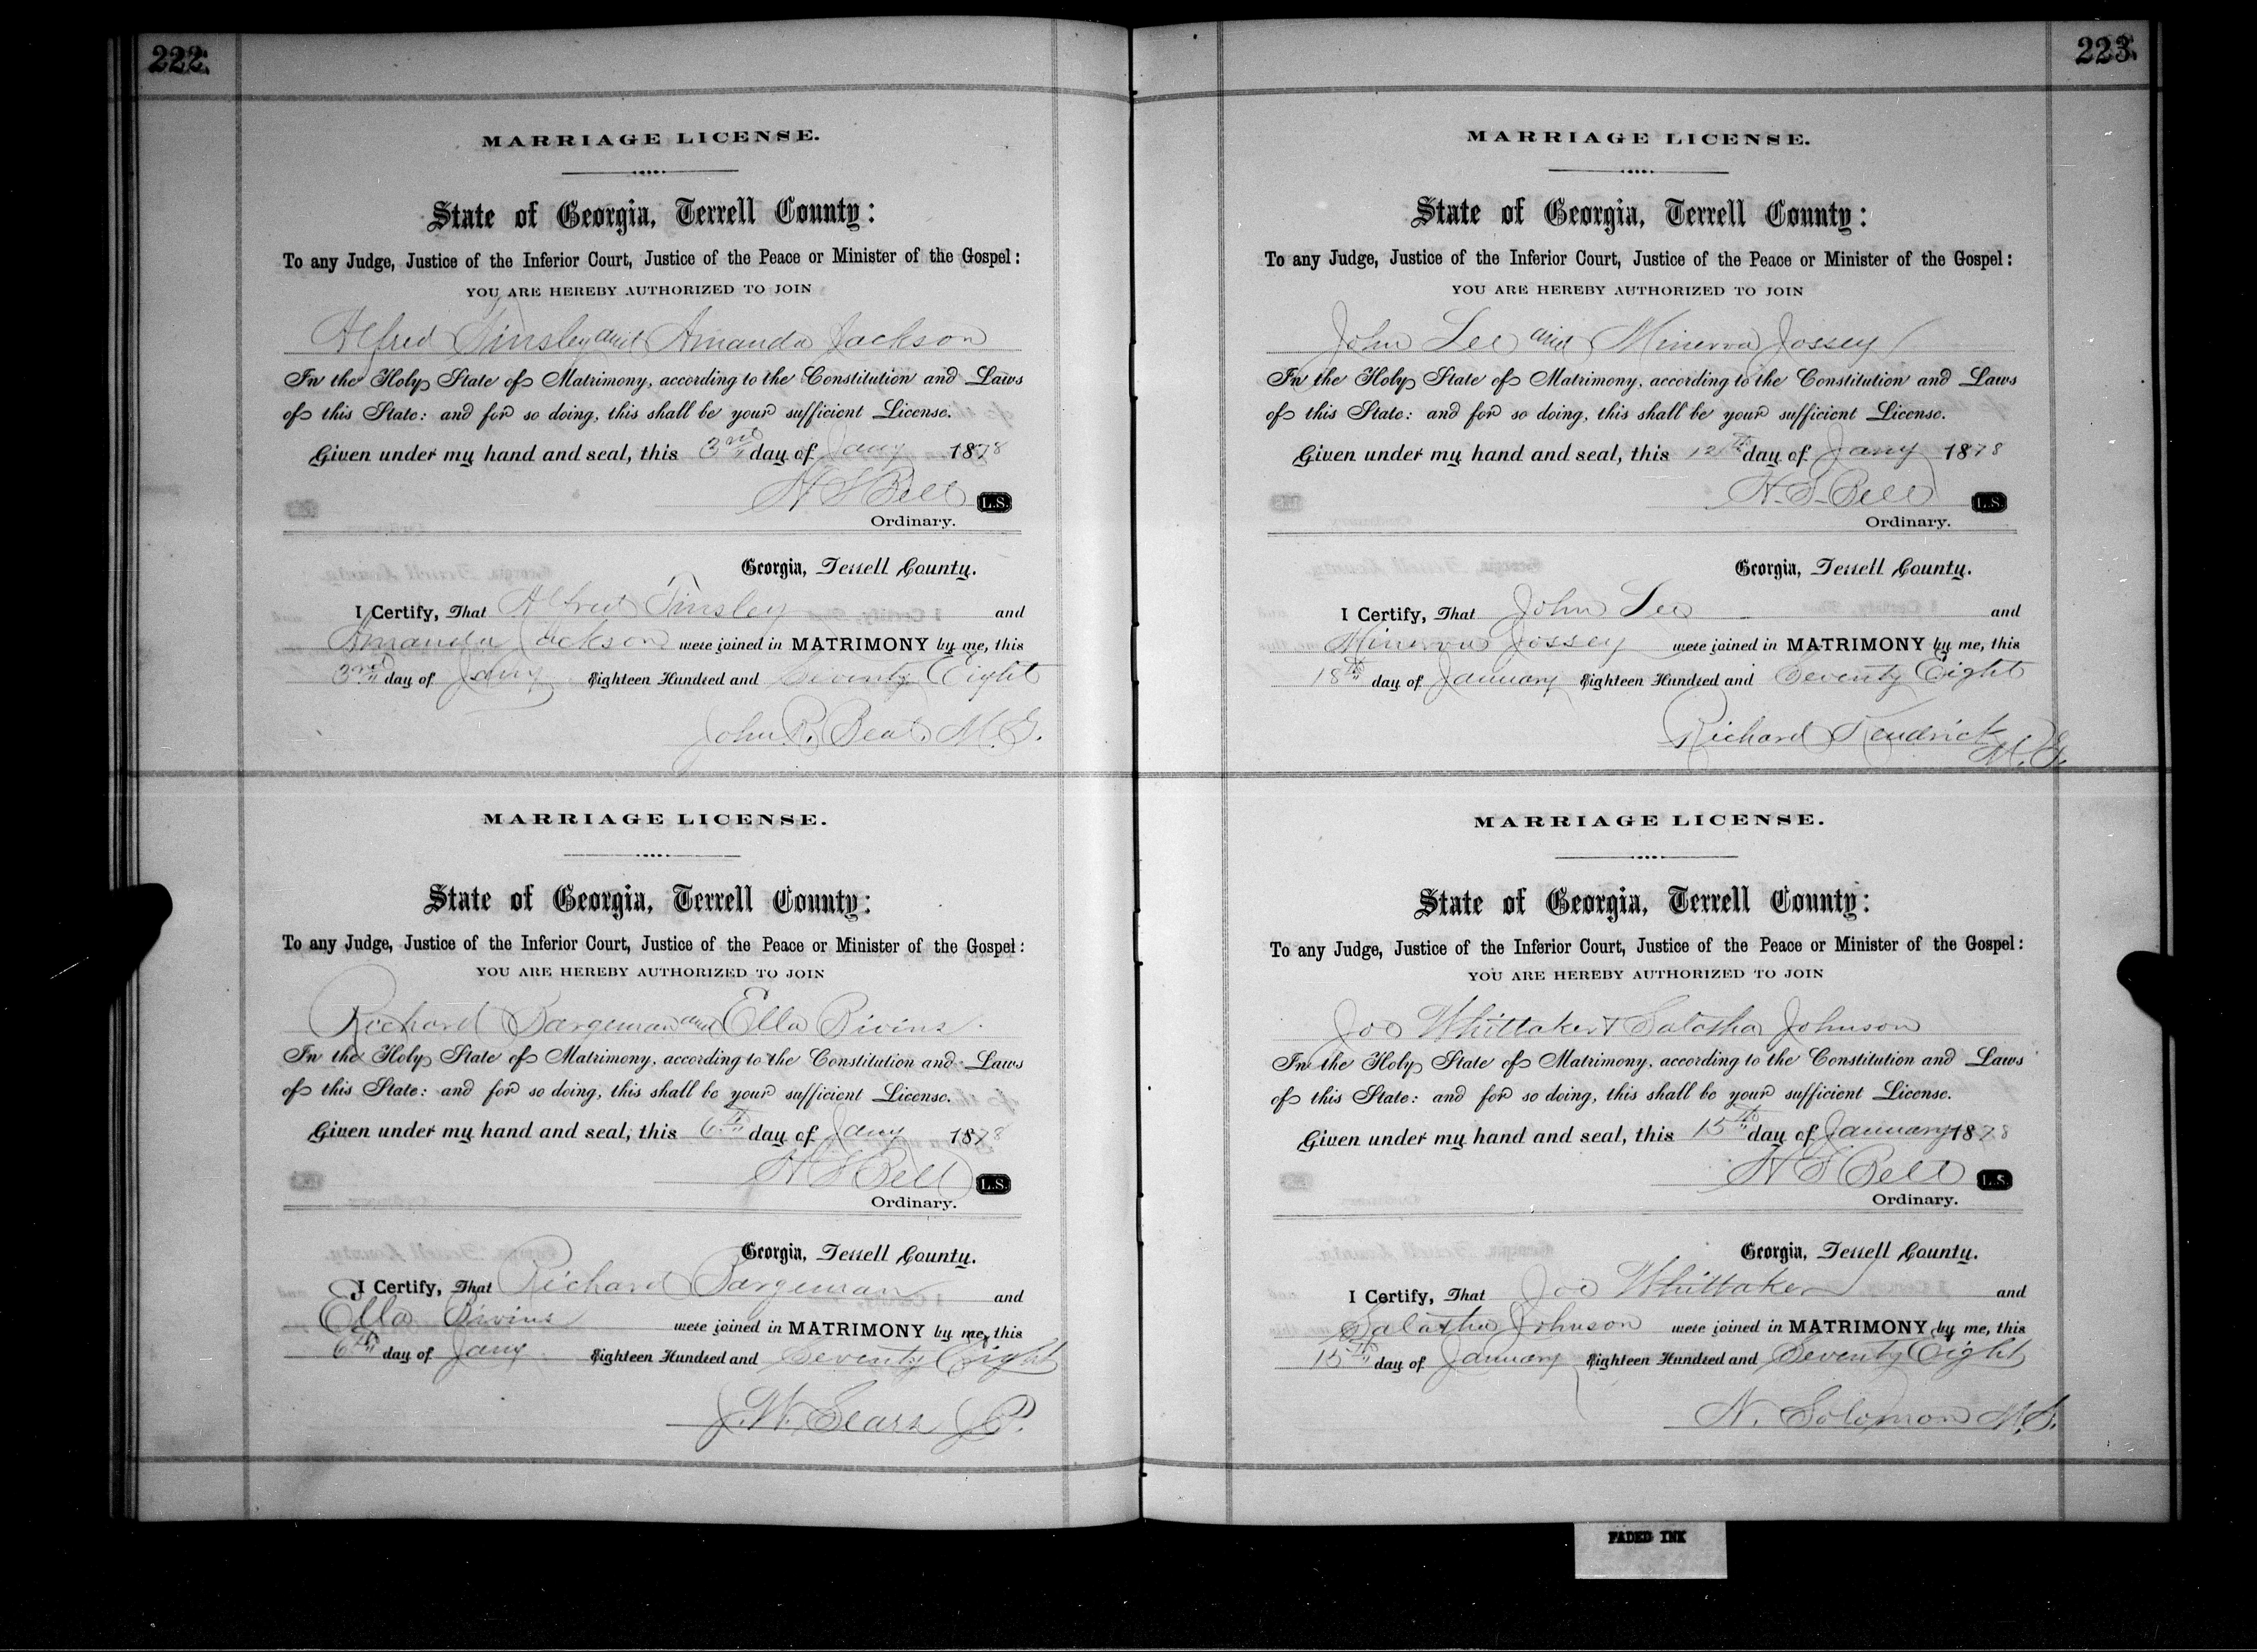 222.
MARRIAGE LICENSE.
State of Georgia, Terrell County:
To any Judge, Justice of the Inferior Court, Justice of the Peace or Minister of the Gospel:
YOU ARE HEREBY AUTHORIZED TO JOIN
Alfred Tinsley and Amanda Jackson
In the Holy State of Matrimony, according to the Constitution and Laws
of this State: and for so doing, this shall be your sufficient License.
Given under my hand and seal, this 3rd day of Jany 1878
H S Bell L.S.
Ordinary.
Georgia, Terrell County.
I Certify, That Alfred Tinsley and
Amanda Jackson were joined in MATRIMONY by me, this
3rd day of Jany Eighteen Hundred and Seventy Eight
John R. Beal. M. G.
MARRIAGE LICENSE.
State of Georgia, Terrell County:
To any Judge, Justice of the Inferior Court, Justice of the Peace or Minister of the Gospel:
YOU ARE HEREBY AUTHORIZED TO JOIN
Richard Bargeman and Ella Bivins.
In the Holy State of Matrimony, according to the Constitution and Laws
of this State: and for so doing, this shall be your sufficient License.
Given under my hand and seal, this 6th day of Jany 1878
H S Bell L.S.
Ordinary.
Georgia, Terrell County.
I Certify, That Richard Bargeman and
Ella Bivins were joined in MATRIMONY by me, this
6th day of Jany Eighteen Hundred and Seventy Eight
J. W. Sears J P.
223.
MARRIAGE LICENSE.
State of Georgia, Terrell County:
To any Judge, Justice of the Inferior Court, Justice of the Peace or Minister of the Gospel:
YOU ARE HEREBY AUTHORIZED TO JOIN
John Lee and Minerva Jossey
In the Holy State of Matrimony, according to the Constitution and Laws
of this State: and for so doing, this shall be your sufficient License.
Given under my hand and seal, this 12th day of Jany 1878
H. S. Bell L.S.
Ordinary.
Georgia, Terrell County.
I Certify, That John Lee and
Minerva Jossey were joined in MATRIMONY by me, this
18th day of January Eighteen Hundred and Seventy Eight
Richard Kendrick
M. G.
MARRIAGE LICENSE.
State of Georgia, Terrell County:
To any Judge, Justice of the Inferior Court, Justice of the Peace or Minister of the Gospel:
YOU ARE HEREBY AUTHORIZED TO JOIN
Joe Whittaker & Salatha Johnson
In the Holy State of Matrimony, according to the Constitution and Laws
of this State: and for so doing, this shall be your sufficient License.
Given under my hand and seal, this 15th day of January 1878
H S Bell L.S.
Ordinary.
Georgia, Terrell County.
I Certify, That Joe Whittaker and
Salatha Johnson were joined in MATRIMONY by me, this
15th day of January Eighteen Hundred and Seventy Eight
N. Solomon M. G.
FADED INK